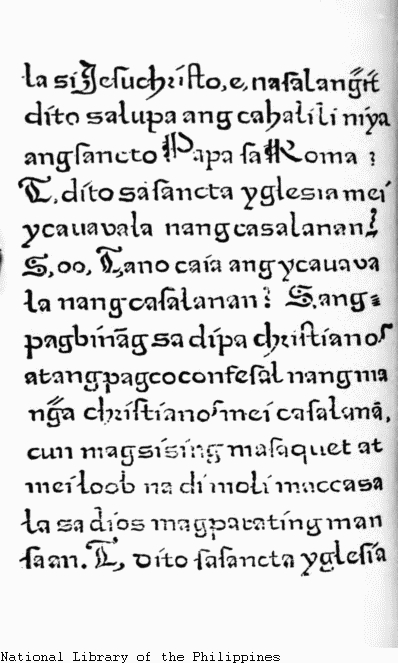 la si Jesuchristo, e, nasa langit
dito sa lupa ang cahalili niya
ang sancto Papa sa Roma ?
T, dito sa sancta yglesia mei
ycauavala nang casalanan?
S, oo, T, ano caia ang ycauava
la nang casalanan? S. ang=
pagbinãg sa dipa christianos
at ang pagcoconfesal nang ma
nga christianos mei casalanã,
cun magsising masaquet at
mei loob na di moli maccasa
la sa dios magparating man
saan. T, dito sa sancta yglesia
National Library of the Philippines